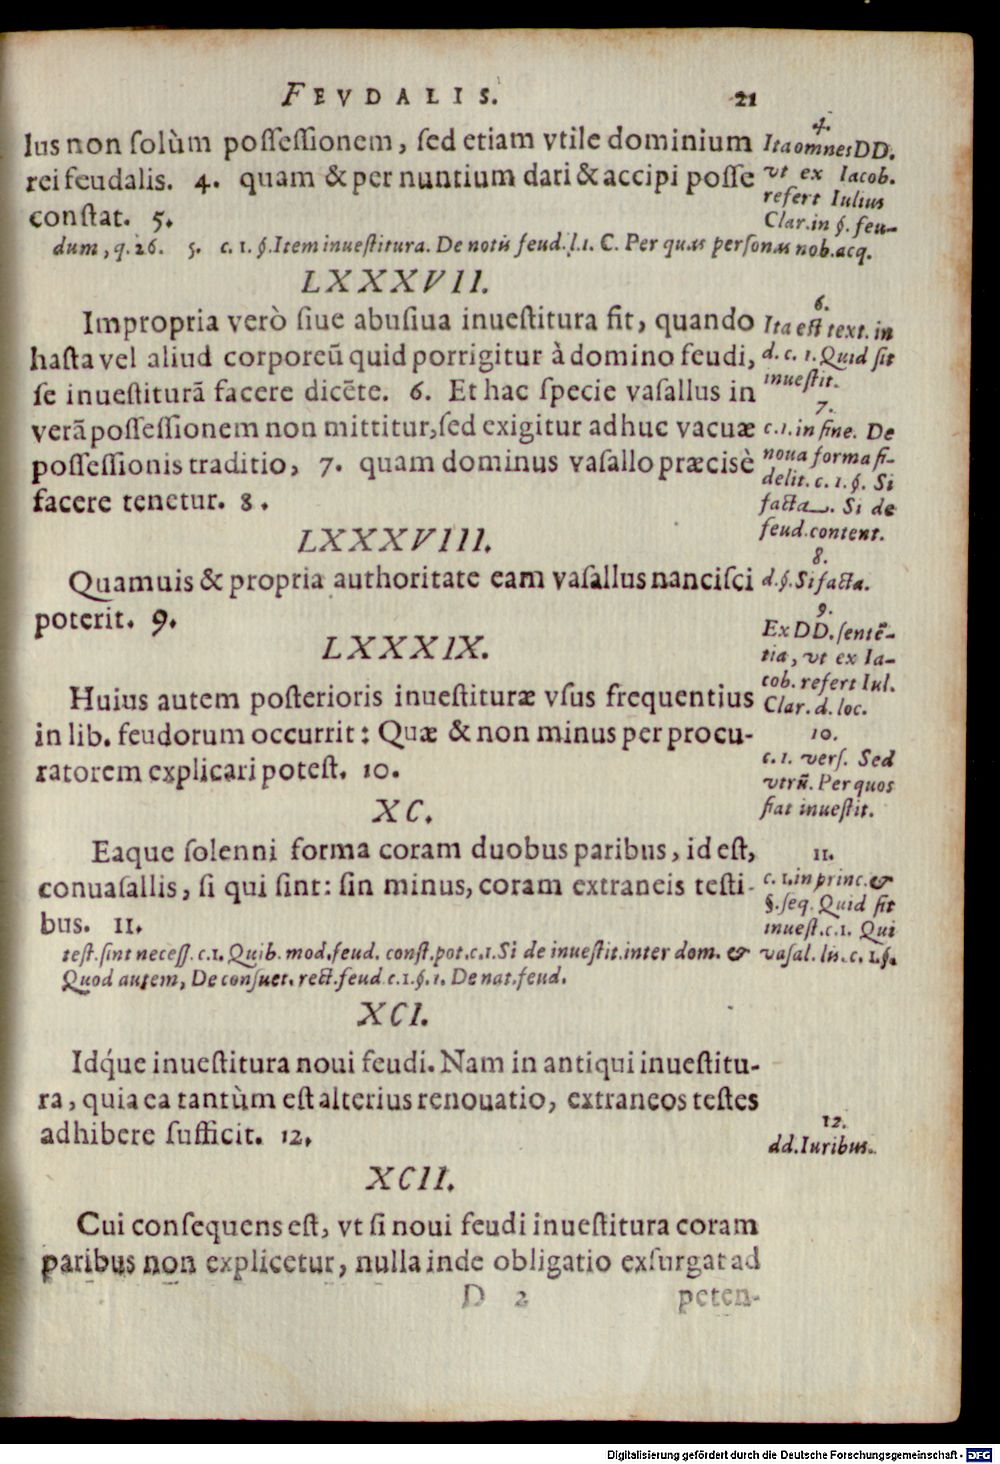 FEVDALIS. 21
lus non ſolùm poſſeſſionem, ſed etiam vtile dominium
rei feudalis. 4. quam & per nuntium dari & accipi poſſe
conſtat. 5.
4.
Ita omnes DD.
vt ex Iacob.
refert Iulius
Clar. in §. feu-
dum, q. 26. 5. c. 1. §. Item inueſtitura. De notis feud. l. 1. C. Per quas perſonas nob. acq.
LXXXVII.
Impropria verò ſiue abuſiua inueſtitura fit, quando
haſta vel aliud corporeũ quid porrigitur à domino feudi,
ſe inueſtiturã facere dicẽte. 6. Et hac ſpecie vaſallus in
verã poſſeſſionem non mittitur, ſed exigitur adhuc vacuæ
poſſeſſionis traditio, 7. quam dominus vaſallo præcisè
facere tenetur. 8.
6.
Ita eſt text. in
d. c. 1. Quid ſit
inueſtit.
7.
c. 1. in fine. De
noua forma fi-
delit. c. 1. §. Si
facta. Si de
feud. content.
8.
d. §. Si facta.
LXXXVIII.
Quamuis & propria authoritate eam vaſallus nanciſci
poterit. 9.
9.
Ex DD. ſentẽ-
tia, vt ex Ia-
cob. refert Iul.
Clar. d. loc.
LXXXIX.
Huius autem poſterioris inueſtituræ vſus frequentius
in lib. feudorum occurrit: Quæ & non minus per procu-
ratorem explicari poteſt. 10.
10.
c. 1. verſ. Sed
vtrũ. Per quos
fiat inueſtit.
XC.
Eaque ſolenni forma coram duobus paribus, id eſt,
conuaſallis, ſi qui ſint: ſin minus, coram extraneis teſti-
bus. 11.
11.
c. 1. in princ. &
§. ſeq. Quid ſit
inueſt. c. 1. Qui
teſt. ſint neceſſ. c. 1. Quib. mod. feud. conſt. pot. c. 1. Si de inueſtit. inter dom. & vaſal. lis. c. 1. §.
Quod autem, De conſuet. rect. feud. c. 1. §. 1. De nat. feud.
XCI.
Idq́ue inueſtitura noui feudi. Nam in antiqui inueſtitu-
ra, quia ea tantùm eſt alterius renouatio, extraneos teſtes
adhibere ſufficit. 12.
12.
dd. Iuribus.
XCII.
Cui conſequens eſt, vt ſi noui feudi inueſtitura coram
paribus non explicetur, nulla inde obligatio exſurgat ad
D 2 peten-
Digitalisierung gefördert durch die Deutsche Forschungsgemeinschaft - DFG